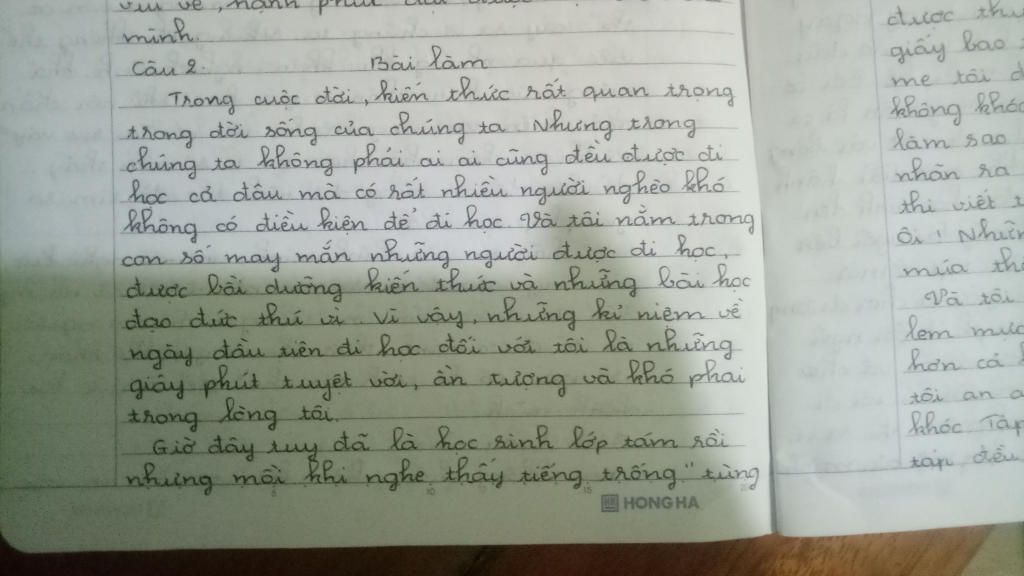 minh.
Câu 2. Bài làm
Trong cuộc đời, kiến thức rất quan trọng
trong đời sống của chúng ta Nhưng trong
chúng ta không phải ai ai cũng đều được đi
học cả đâu mà có rất nhiều người nghèo khó
không có điều kiện để đi học Và tôi nằm trong
con số may mắn những người được đi học,
được bồi dưỡng kiến thức và những bài học
đạo đức thú vị Vì vậy, những kỉ niệm về
ngày đầu tiên đi học đối với tôi là những
giây phút tuyệt vời, ấn tượng và khó phai
trong lòng tôi.
Giờ đây tuy đã là học sinh lớp tám rồi
nhưng mỗi khi nghe thấy tiếng trống "tùng
HONG HA
được
giấy bao
mẹ tôi
không khó
làm sao
nhãn ra
thì viết
Ôi! Những
múa
Và tôi
lem
hơn cả
tôi an
khóc Tập
táp đều